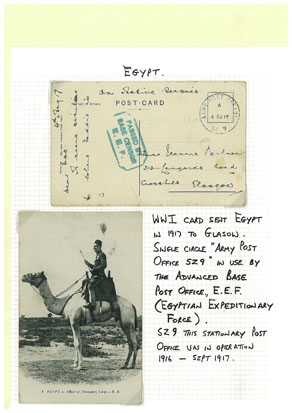 EGYPT.
On Active Service
POST-CARD
ARMY POST OFFICE
A
SZ 9
PASSED BY
BASE CENSOR
E. E. F.
Road
Crosshill
Glasgow
WWI CARD SENT EGYPT
IN 1917 TO GLASOW.
SINGLE CIRCLE "ARMY POST
OFFICE SZ9" IN USE BY
THE ADVANCED BASE
POST OFFICE, E.E.F.
(EGYPTIAN EXPEDITIONARY
FORCE).
SZ9 THIS STATIONARY POST
OFFICE WAS IN OPERATION
1916 - SEPT 1917.
EGYPT - Officer of Dromedary Corps - B. B.